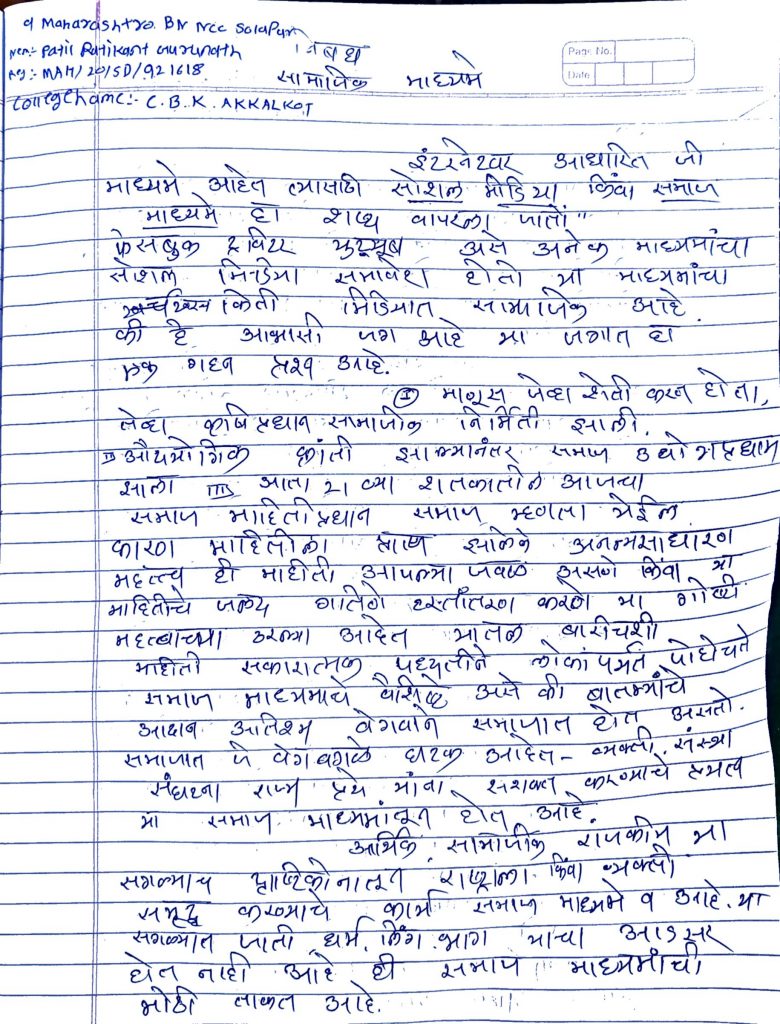 9 Maharashtra BN NCC Solapur
Nem:- Patil Ratikant Gurunath
निबंध
Reg:- MAH/20/SD/921618
सामाजिक माध्यमे
Page No.
Date
College name:- C.B.K. AKKALKOT
इंटरनेटवर आधारित जी
माध्यमे आहेत त्यासाठी सोशल मीडिया किंवा समाज
माध्यमे हा शब्द वापरला जातो"
फेसबुक ट्विटर युट्युब असे अनेक माध्यमांचा
सोशल मिडीया समावेश होतो या माध्यमांचा
किती मिडियात सामाजिक आहे
की हे आभासी जग आहे या जगात हा
एक गहन प्रश्न आहे.
I माणूस जेव्हा शेती करत होता,
तेव्हा कृषि प्रधान सामाजीक निर्मिती झाली.
II औद्योगिक क्रांती झाल्यानंतर समाज उद्योगप्रधान
झाला III आता 21 व्या शतकातील आपला
समाज माहिती प्रधान समाज म्हणता येईल
कारण माहितीला प्राप्त झालेले अनन्यसाधारण
महत्त्व ही माहीती आपल्या जवळ असणे किंवा या
माहितीचे जलद गतीने हस्तांतरण करणे या गोष्टी
महत्वाच्या ठरल्या आहेत यातील बारीचशी
माहीती सकारात्मक पध्दतीने लोकांपर्यंत पोहोचते
समाज माध्यमाचे वैशिष्टे असे की बातम्यांचे
आदान अतिशय वेगवान समाजात होत असतो.
समाजात जे वेगवेगळे घटक आहेत - व्यक्ती, संस्था
संघटना राज्य यांना सशक्त करण्याचे प्रयत्न
या समाज माध्यमांतून होत आहे.
आर्थिक, सामाजीक राजकीय या
सगळ्याच दृष्टिकोनातून राष्ट्राला किंवा व्यक्ती
समृद्ध करण्याचे कार्य समाज माध्यमे व आहे. या
सगळ्यात जाती, धर्म, लिंग, भाग याचा अडसर
होत नाही आहे ही समाज माध्यमांची
मोठी ताकत आहे.